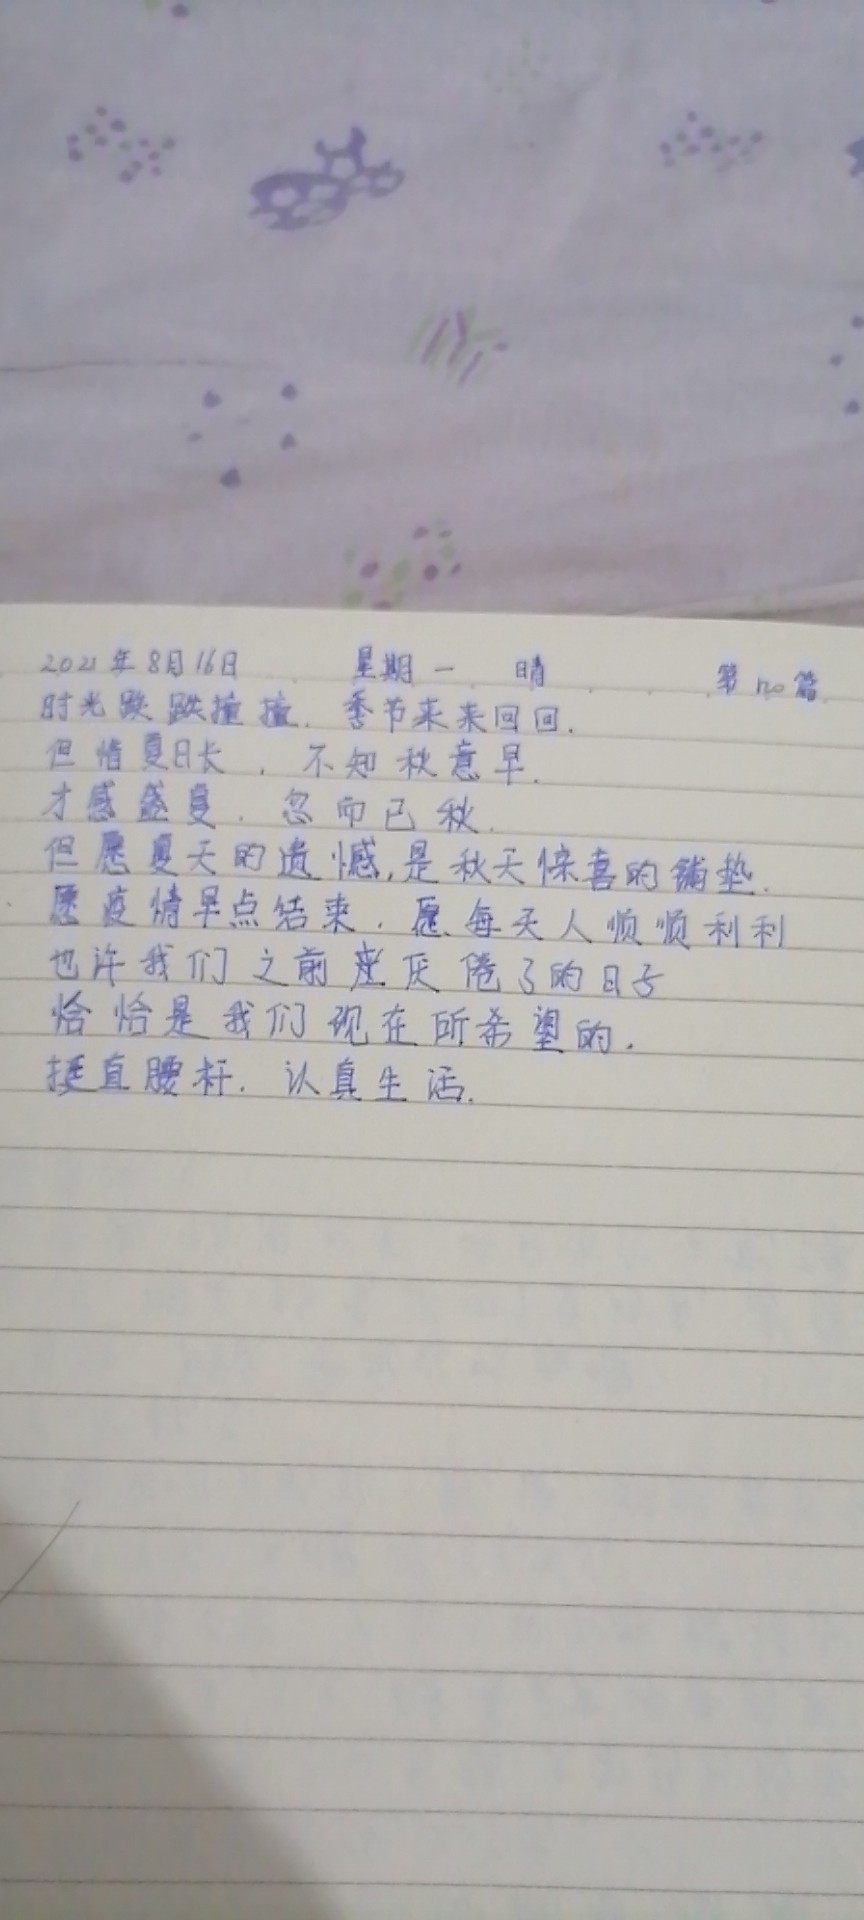 2021年8月16日 星期一 晴 第120篇
时光跌跌撞撞.季节来来回回.
但惜夏日长,不知秋意早.
才感盛夏.忽而已秋.
但愿夏天的遗憾,是秋天惊喜的铺垫.
愿疫情早点结束.愿每天人顺顺利利
也许我们之前 厌倦了的日子
恰恰是我们现在所希望的.
挺直腰杆.认真生活.